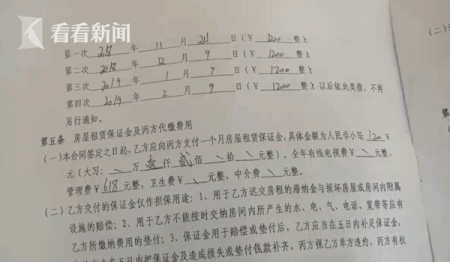 看看新闻
第一次 2018 年 11 月 21 日(¥ 1200 整)
第二次 2018 年 12 月 9 日(¥ 1200 整)
第三次 2019 年 1 月 9 日(¥ 1200 整)
第四次 2019 年 2 月 9 日(¥ 1200 整)以后依此类推,不再
另行通知。
第五条 房屋租赁保证金及丙方代缴费用
(一)本合同签定之日起,乙方应向丙方支付一个月房屋租赁保证金,具体金额为人民币小写 1200 ¥
元(大写: \ 万 壹 仟 贰 佰 \ 拾 \ 元整)。全年有线电视费 \ 元整,
管理费¥ 618 元整,卫生费¥ \ 元整,中介费 \ 元整。
(二)乙方交付的保证金仅作担保用途:1、用于乙方迟交房租的滞纳金与损坏房屋或房间内附属
设施的赔偿;2、用于乙方不能按时交纳房间内所产生的水、电、气、电话、宽带等应有
乙方所缴纳费用的垫付;3、保证金用于赔偿或垫付后,乙方应当在五日内补足保证金,
五日内未把保证金及造成损失或垫付钱款补齐,丙方视乙方单方违约,丙方有权
(二)